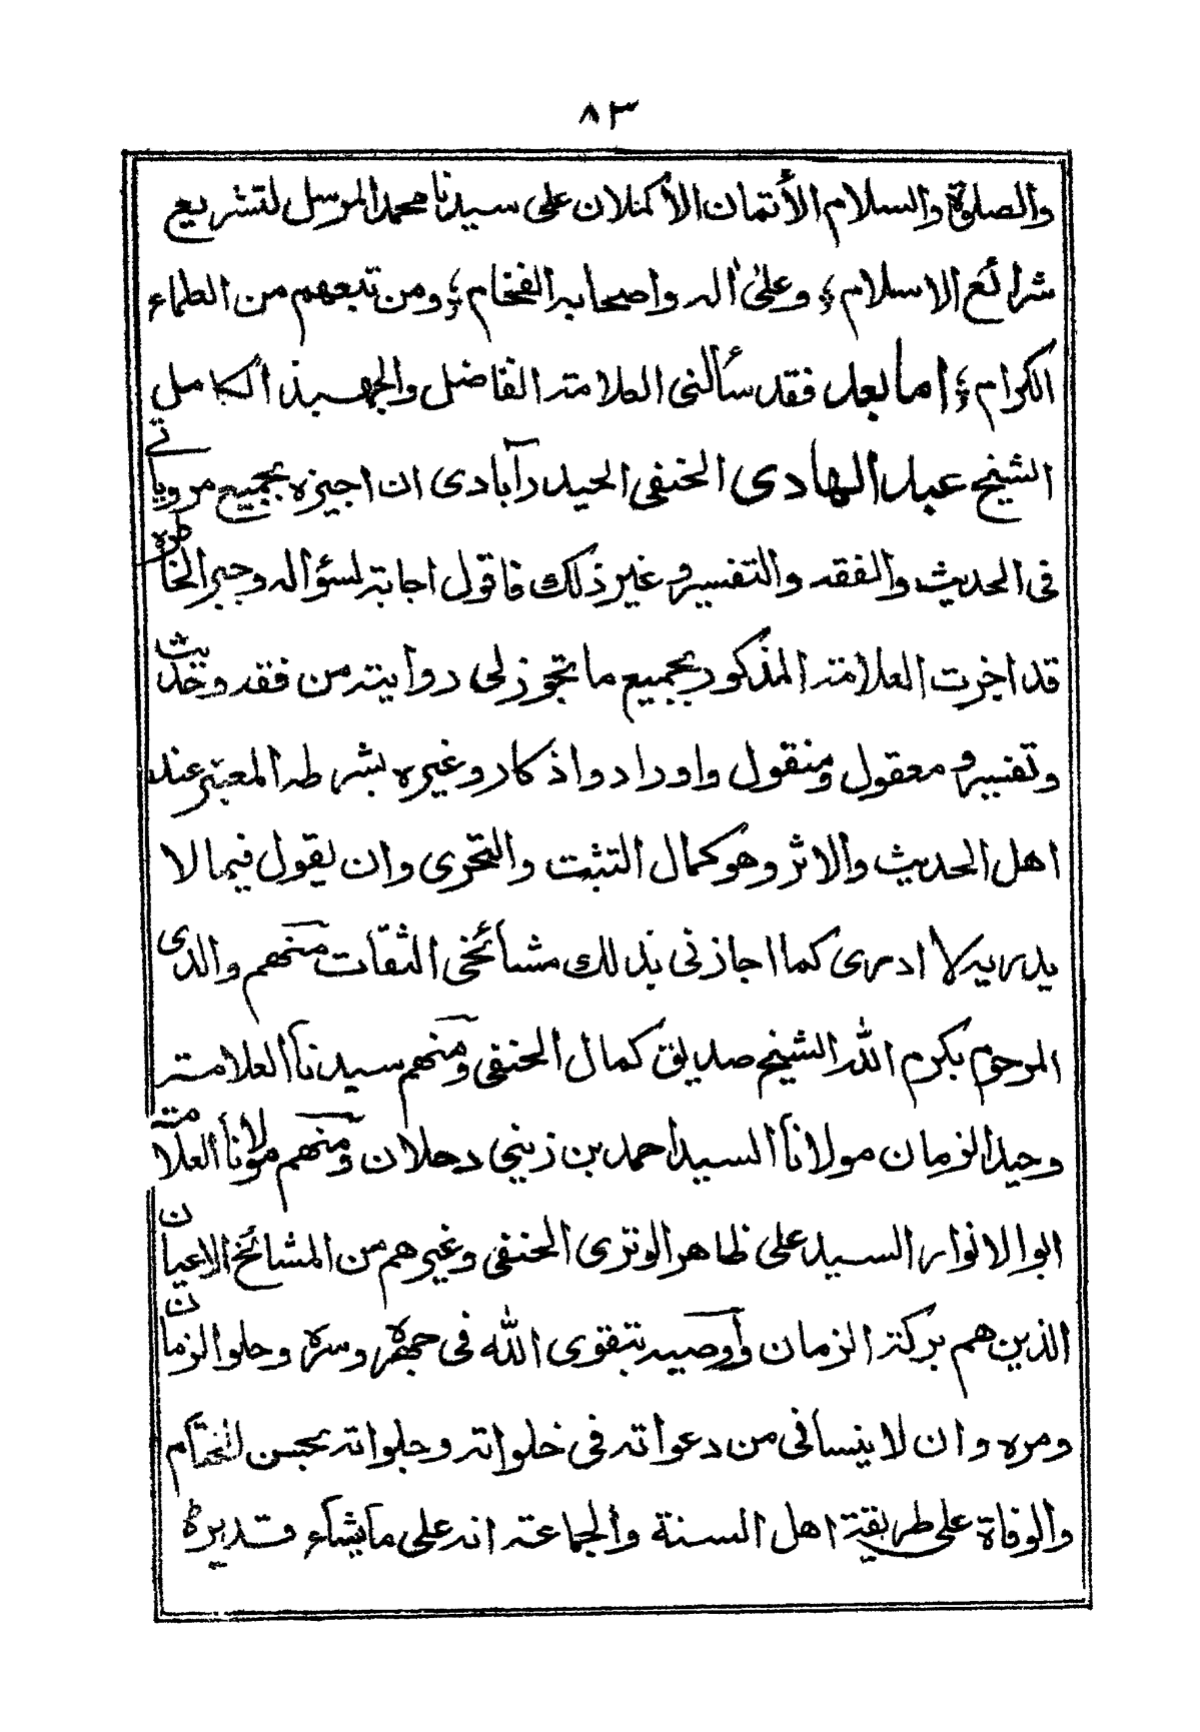 ٨٣
والصلوٰة والسلام الأتمان الأكملان على سيدنا محمد المرسل لتشريع
شرائع الاسلام؛ وعلىٰ اٰله واصحابه الفخام؛ ومن تبعهم من العلماء
الكرام؛ اما بعد فقد سألنى العلامة الفاضل والجهبذ الكامل
الشيخ عبد الهادى الحنفى الحيدرآبادى ان اجيزه بجميع مروياتى
فى الحديث والفقه والتفسير وغير ذلك فاقول اجابة لسؤاله وجبر الخاطره
قد اجزت العلامة المذكور بجميع ما تجوز لى روايته من فقه وحديث
وتفسير ومعقول ومنقول واوراد واذكار وغيره بشرطه المعتبر عند
اهل الحديث والاثر وهو كمال التثبت والتحرى وان يقول فيما لا
يدريه لا ادرى كما اجازنى بذلك مشائخى الثقات منهم والدى
المرحوم بكرم الله الشيخ صديق كمال الحنفى ومنهم سيدنا العلامة
وحيد الزمان مولانا السيد احمد بن زيني دحلان ومنهم مولانا العلامة
ابو الانوار السيد على ظاهر الوترى الحنفى وغيرهم من المشائخ الاعيان
الذين هم بركة الزمان وأوصيه بتقوى الله فى جهره وسره وحلو الزمان
ومره وان لا ينسانى من دعواته فى خلواته وجلواته بحسن الختام
والوفاة على طريقة اهل السنة والجماعة انه على ما يشآء قدير